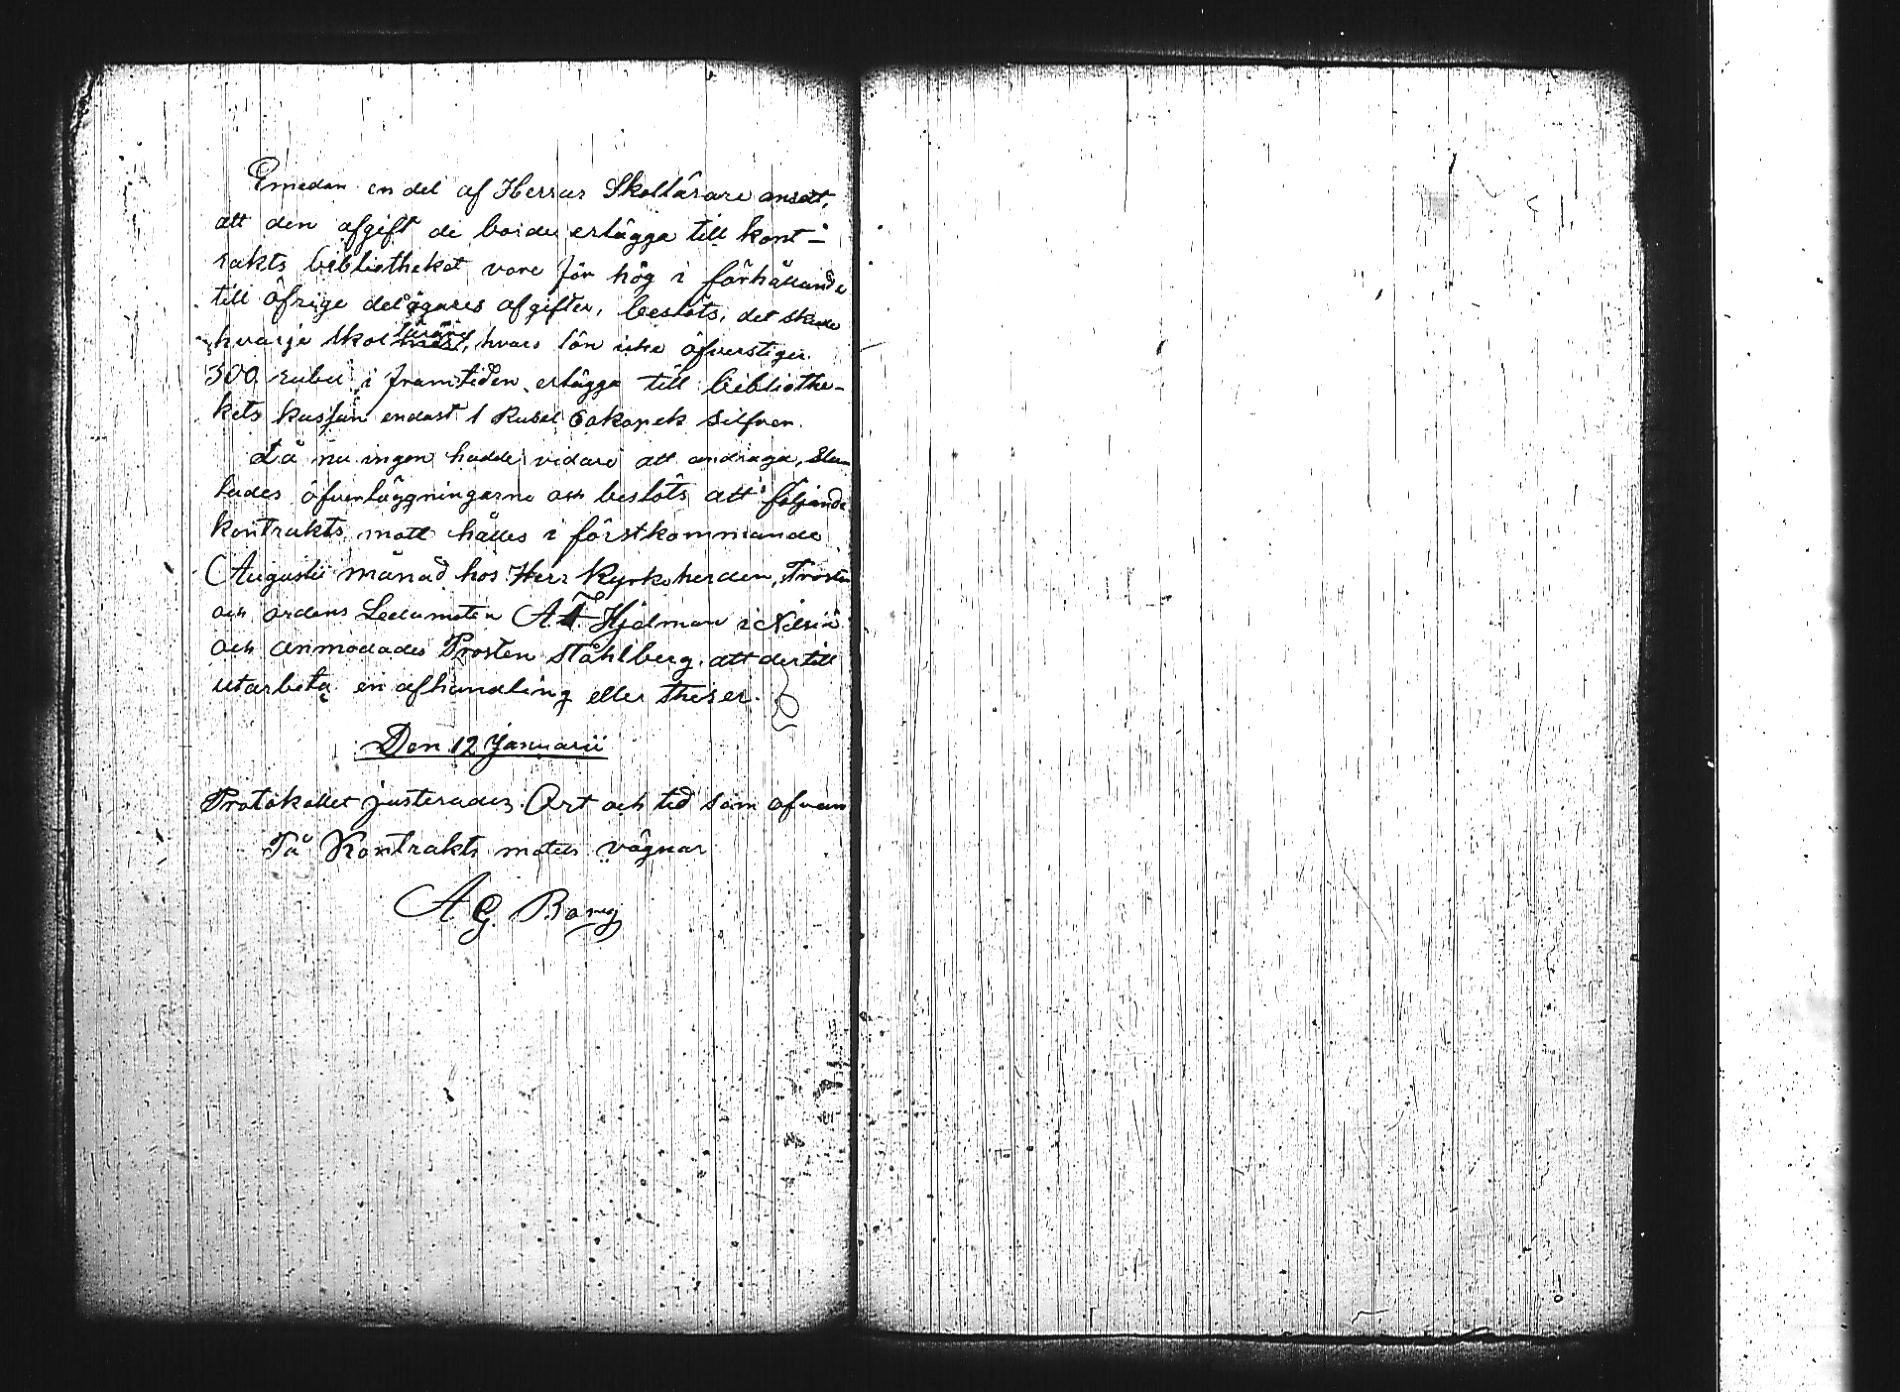 Emedan en del af Herrar Skollärare ansett,
att den afgift de borde erlägga till kont-
rakts bibliotheket vore för hög i förhållande
till öfrige delägares afgifter, beslöts, det skulle
hvarje skollärare, hvars lön icke öfverstiger
300 rubel i framtiden erlägga till bibliothe-
kets kassan endast 1 Rubel 60 kopek silfver.
Då nu ingen hade vidare att andraga, slu-
tades öfverläggningarne och beslöts att följande
kontrakts mött hålles i förstkommande
Augustii månad hos Herr Kyrkoherden, Prosten
och ordens Ledamoten A. F. Hjelman i Nilsiä
och anmodades Prosten Ståhlberg att dertill
utarbeta en afhandling eller theser.
Den 12 Januarii
Protokollet justerades. Ort och tid som ofvan
På Kontrakts mötets vägnar
A G. Borg